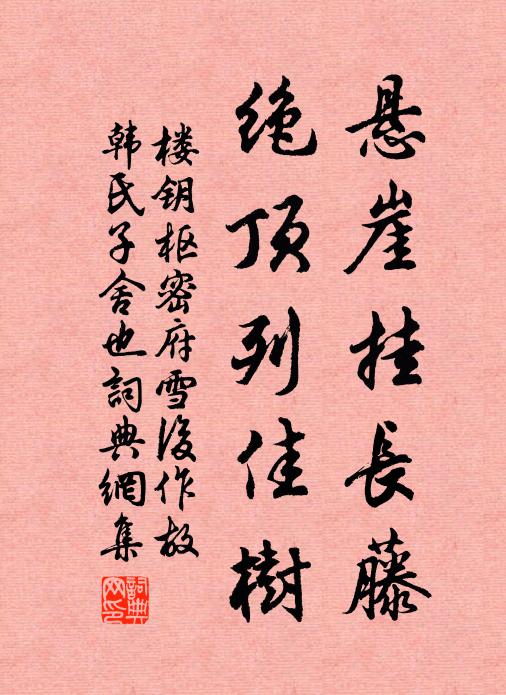 悬崖挂长藤
绝顶列佳樹
楼钥枢密府雪後作故
韩氏子舍也詞典網集
詞典网印